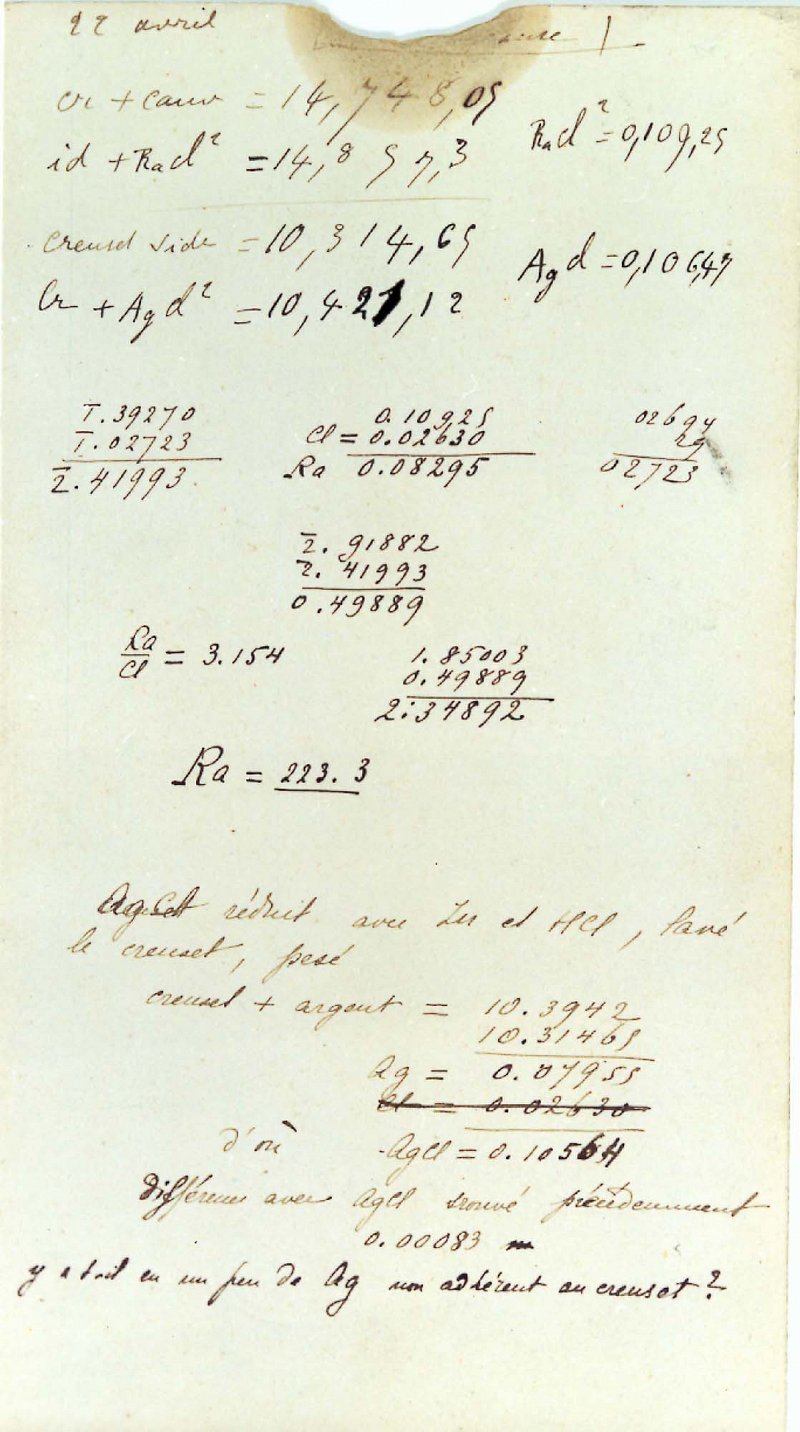 22 avril
cr + couv = 14,748,05
Rad² = 0,109,25
id + Rad² = 14,857,3
creuset vide = 10,314,65
Agd = 0,106,47
Cr + Agd² = 10,421,12
1̅.39270
1̅.02723
2̅.41993
0.10925
Cl = 0.02630
Ra 0.08295
02694
29
02723
2̅.91882
2̅.41993
0.49889
Ra/Cl = 3.154
1.85003
0.49889
2.34892
Ra = 223.3
AgCl réduit avec Zn et HCl, lavé
le creuset, pesé
creuset + argent = 10.3942
10.31465
Ag = 0.07955
Cl = 0.02630
d'où AgCl = 0.10564
différence avec AgCl trouvé précédemment
0.00083
y a t-il eu un peu de Ag non adhérent au creuset ?